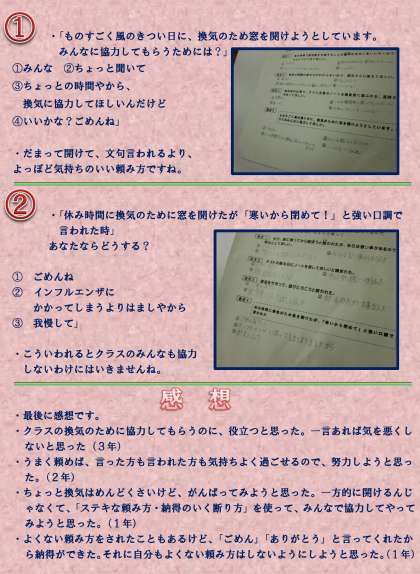 ①
・「ものすごく風のきつい日に、換気のため窓を開けようとしています。
みんなに協力してもらうためには？」
①みんな　②ちょっと聞いて
③ちょっとの時間やから、
換気に協力してほしいんだけど
④いいかな？ごめんね」
・だまって開けて、文句言われるより、
よっぽど気持ちのいい頼み方ですね。
②
・「休み時間に換気のために窓を開けたが「寒いから閉めて！」と強い口調で
言われた時」
あなたならどうする？
①　ごめんね
②　インフルエンザに
かかってしまうよりはましやから
③　我慢して」
・こういわれるとクラスのみんなも協力
しないわけにはいきませんね。
感　想
・最後に感想です。
・クラスの換気のために協力してもらうのに、役立つと思った。一言あれば気を悪くし
ないと思った（３年）
・うまく頼めば、言った方も言われた方も気持ちよく過ごせるので、努力しようと思っ
た。（２年）
・ちょっと換気はめんどくさいけど、がんばってみようと思った。一方的に開けるんじ
ゃなくて、「ステキな頼み方・納得のいく断り方」を使って、みんなで協力してやって
みようと思った。（１年）
・よくない頼み方をされたこともあるけど、「ごめん」「ありがとう」と言ってくれたか
ら納得ができた。それに自分もよくない頼み方はしないようにしようと思った。（１年）